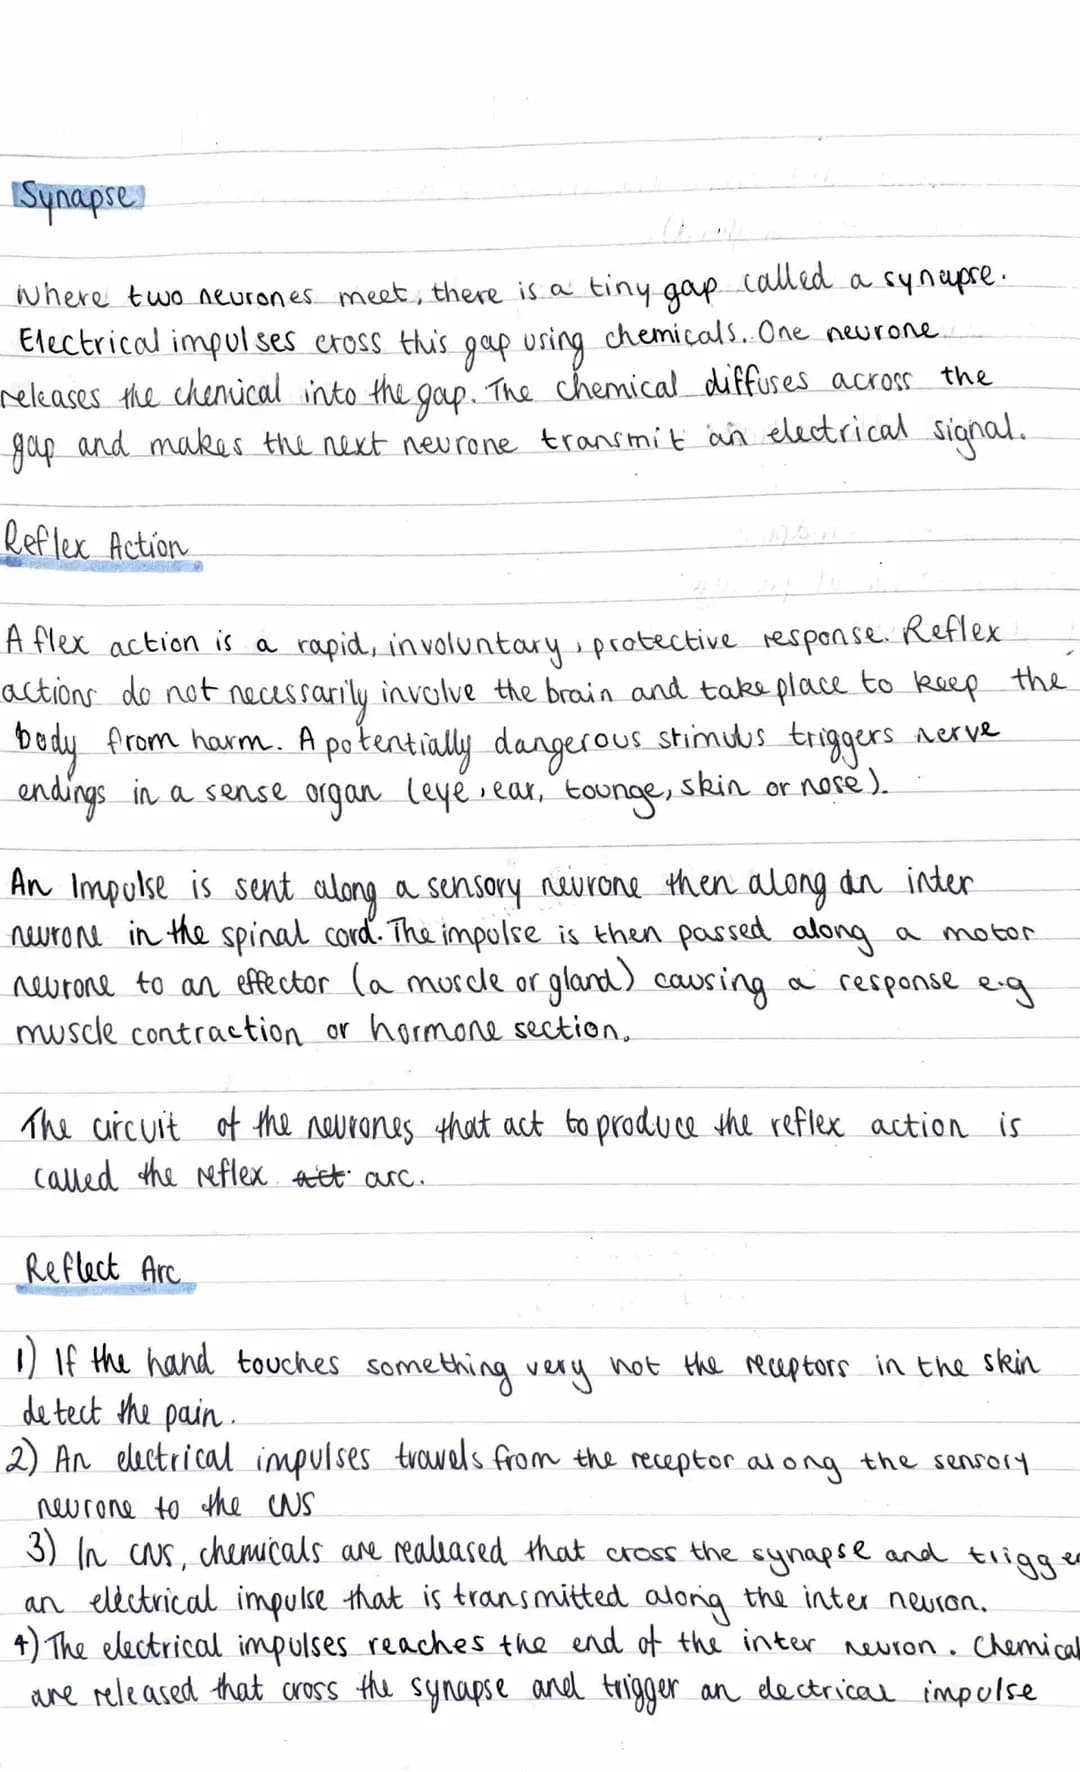 Synapse
Where two neurones meet, there is a tiny gap called a synapse.
Electrical impulses cross this gap using chemicals. One neurone
releases the chemical into the gap. The chemical diffuses across the
gap and makes the next neurone transmit an electrical signal.
Reflex Action
A flex action is a rapid, involuntary, protective response. Reflex
actions do not necessarily involve the brain and take place to keep the
body from harm. A potentially dangerous stimulus triggers nerve
endings in a sense organ (eye, ear, tounge, skin or nose).
An Impulse is sent along a sensory neurone then along an inter
neurone in the spinal cord. The impulse is then passed along a motor
neurone to an effector (a muscle or gland) causing a response e.g
muscle contraction or hormone section.
The circuit of the neurones that act to produce the reflex action is
called the reflex act arc.
Reflect Arc
1) If the hand touches something very hot the receptors in the skin
detect the pain.
2) An electrical impulses travels from the receptor along the sensory
neurone to the CNS
3) In CNS, chemicals are realeased that cross the synapse and trigger
an electrical impulse that is transmitted along the inter neuron.
4) The electrical impulses reaches the end of the inter neuron. Chemical
are released that cross the synapse and trigger an electrical impulse